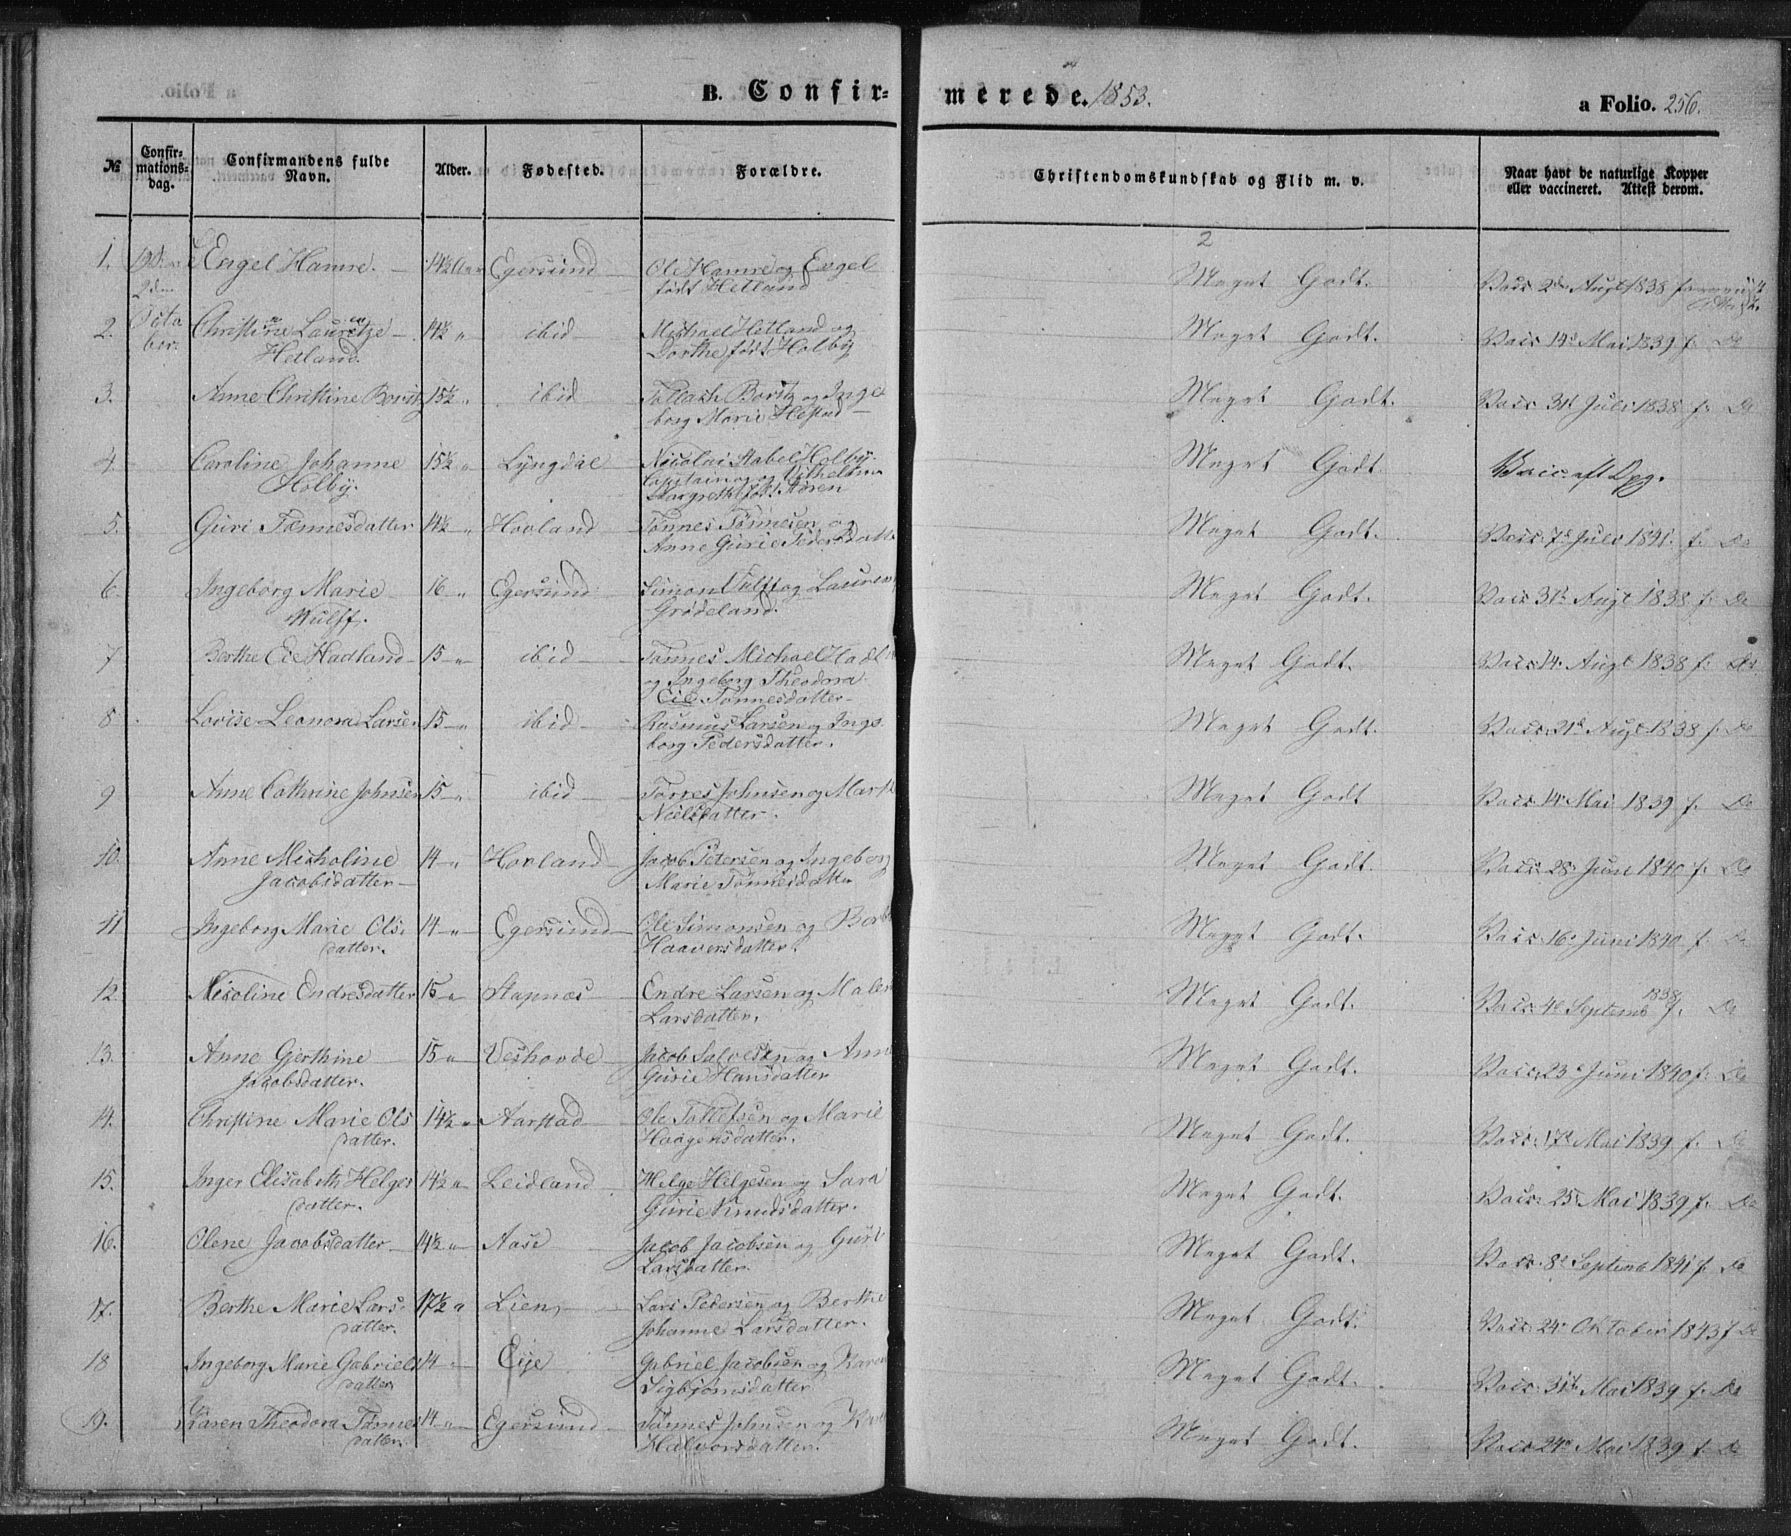 B. Confir- merede. 1853. a Folio. 256.
№ Confir- mations- dag. Confirmandens fulde Navn. Alder. Fødested. Forældre. Christendomskundskab og Flid m. v. Naar havt de naturlige Kopper eller vaccineret. Attest derom.
1. Engel Hamre. 14½ Aar Egersund Ole Hamre og Engel Meget Godt. Vacc 2den Augt 1838 f
2den født Hetland
Octo
ber.
2. Christine Lauretze 14½ " ibid Michael Hetland og Meget Godt. Vacc 14d Mai 1839 f. Do
Hetland. Dorthe født Holby
3. Anne Christine Boritz 15½ " ibid Tallach Boritz og Inge Meget Godt. Vacc 31d Juli 1838 f. Do
borg Marie Hestad
4. Caroline Johanne 15½ " Lyngdal Nicolai Stabel Holby. Meget Godt. Vacc. aft Opg.
Holby. Capitain og Vilhelmine
Margrethe født Køren
5. Guri Tønnesdatter 14½ " Hovland Tønnes Tønnesen og Meget Godt. Vacc. 7d Juli 1841. f. Do
Anne Gurie Pedersdatt
6. Ingeborg Marie 16 " Egersund Simon Wulff og Lauren Meget Godt. Vacc 31d Augt 1838 f. Do
Wulff. Grødeland.
7 Berthe Eie Hadland 15 " ibid Tønnes Michael Hadl Meget Godt. Vacc 14. Augt 1838 f. Do
og Ingeborg Theodora
Eie Tønnesdatter
8 Lovise Leonora Larsen 15 " ibid Rasmus Larsen og Inge Meget Godt. Vacc. 21d Augt 1838 f. Do
borg Pedersdatter.
9 Anne Cathrine Johnsen 15 " ibid Torres Johnsen og Marth Meget Godt Vacc. 14d Mai 1839 f. Do
Nielsdatter.
10. Anne Micholine 14 " Hovland Jacob Petersen og Ingeborg Meget Godt. Vacc. 28d Juni 1840 f. Do
Jacobsdatter Marie Tønnesdatter
11 Ingeborg Marie Ols. 14 " Egersund Ole Simonsen og Berth Meget Godt. Vacc. 16d Juni 1840 f. Do
datter. Haaversdatter.
12. Nicoline Endresdatter 15 " Stapnæs Endre Larsen og Malen Meget Godt. Vacc. 4d Septemb 1838 f. Do
Larsdatter.
13. Anne Gjerthine 15 " Veshovde Jacob Salvesen og Anne Meget Godt. Vacc. 23d Juni 1840 f. Do
Jacobsdatter. Gurie Hansdatter
14. Christine Marie Ols 14½ " Aarstad Ole Tolletsen og Marie Meget Godt. Vacc. 17d Mai 1839 f. Do
datter. Haagensdatter.
15. Inger Elisabeth Helges 14½ " Leidland Helge Helgesen og Sara Meget Godt. Vacc. 25d Mai 1839 f. Do
datter. Gurie Knudsdatter.
16. Olene Jacobsdatter 14½ " Aase Jacob Jacobsen og Guri Meget Godt. Vacc. 8d Septemb 1841 f. Do
Larsdatter.
17. Berthe Marie Lars. 17½ " Lien, Lars Pedersen og Berthe Meget Godt. Vacc. 24d Oktober 1843 f Do
datter. Johanne Larsdatter.
18 Ingeborg Marie Gabriels 14 " Eije Gabriel Jacobsen og Karen Meget Godt. Vacc. 31d Mai 1839 f. Do
datter Sigbjørnsdatter
19. Karen Theodora Tønnes 14 " Egersund Tønnes Johnsen og Meget Godt. Vacc. 24d Mai 1839 f. Do
datter. Halvorsdatter.